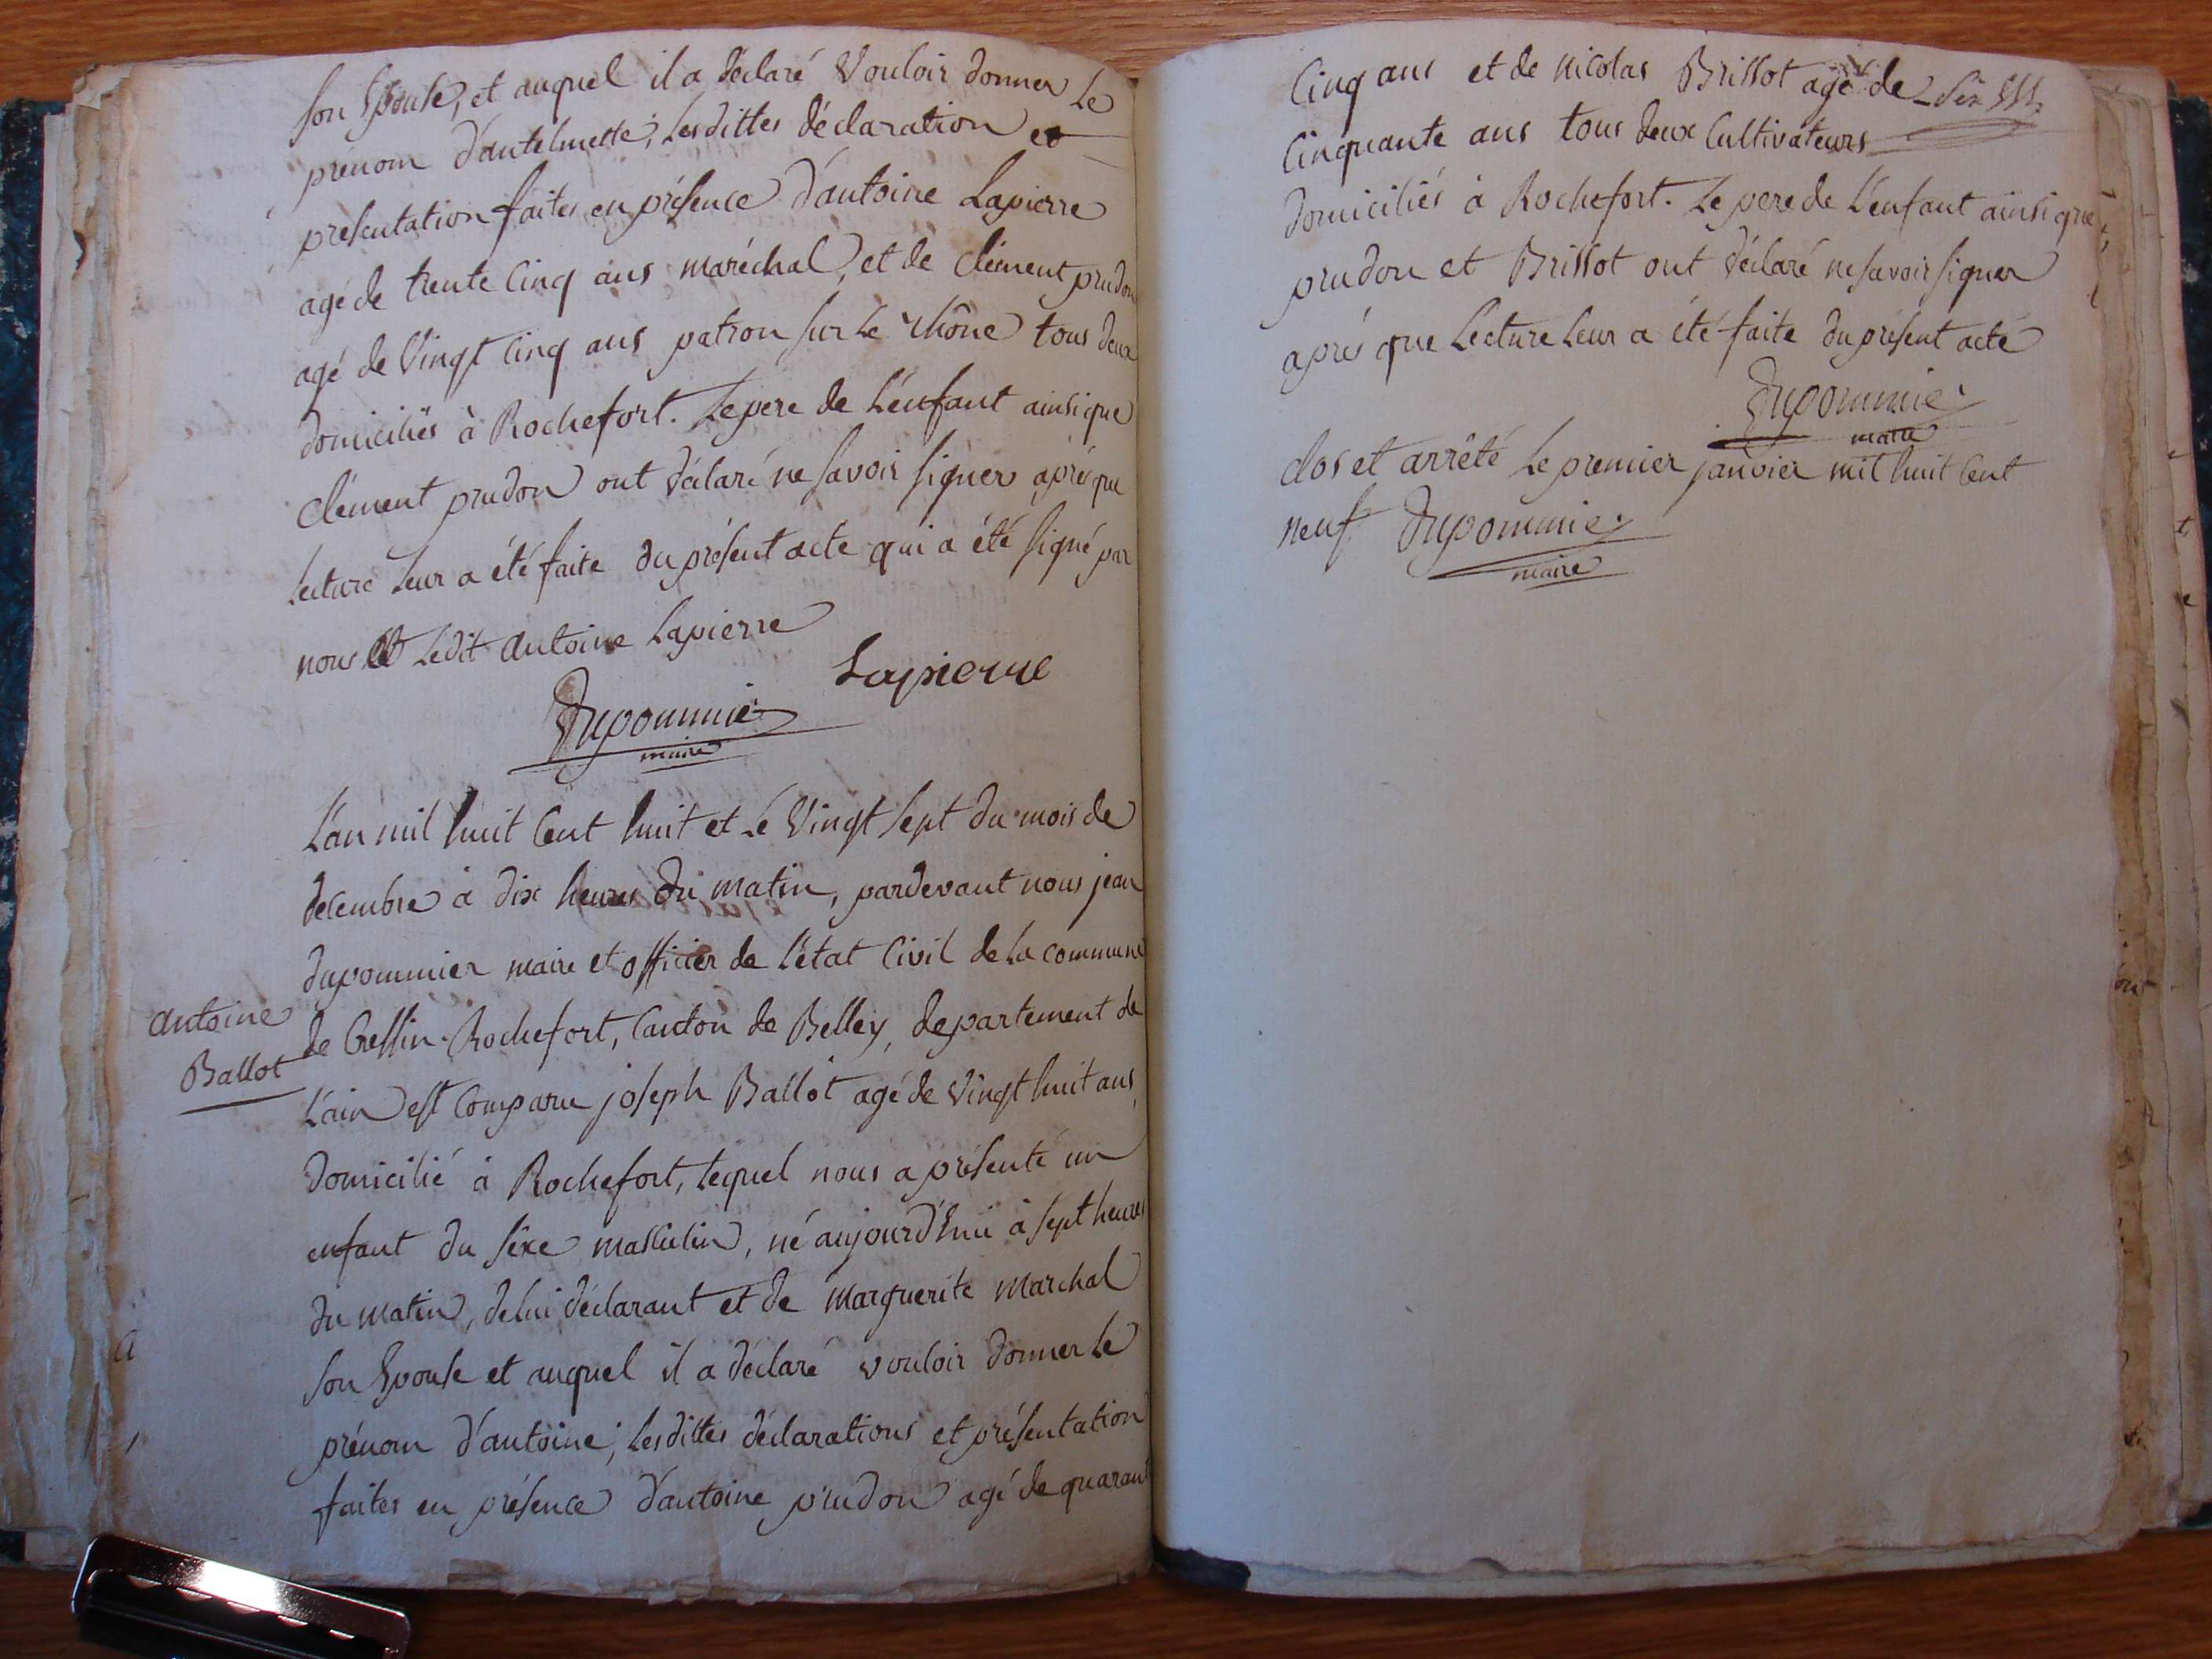 son Epouse, et auquel il a déclaré Vouloir donner Le
prénom d'antelmette; Lesdittes déclaration et
présentation faites en présence d'antoine Lapierre
agé de trente Cinq ans maréchal, et de Clément prudon
agé de Vingt Cinq ans patron sur Le rhône tous deux
domiciliés à Rochefort. Le pere de L'enfant ainsi que
Clément prudon ont déclaré ne savoir signer après que
Lecture Leur a été faite du présent acte qui a été signé par
nous et Ledit antoine Lapierre
Lapierre
Dupommier
maire
L'an mil huit Cent huit et Le Vingt sept du mois de
décembre à dix heures du matin, pardevant nous jean
dupommier maire et officier de L'état Civil de La commune
antoine
Ballot
de Cressin-Rochefort, Canton de Belley, departement de
L'ain est Comparu joseph Ballot agé de Vingt huit ans,
domicilié à Rochefort, Lequel nous a présenté un
enfant du sèxe masculin, né aujourd'hui à sept heures
du matin, de lui déclarant et de marguerite marchal
son Epouse et auquel il a déclaré vouloir donner Le
prénom d'antoine; Lesdittes déclarations et présentation
faites en présence d'antoine prudon agé de quarante
Cinq ans et de nicolas Brissot agé de
Cinquante ans tous deux Cultivateurs
domiciliés à Rochefort. Le pere de L'enfant ainsi que
prudon et Brissot ont déclaré ne savoir signer
après que Lecture Leur a été faite du présent acte
Dupommier
maire
clos et arrêté Le premier janvier mil huit Cent
neuf. Dupommier
maire